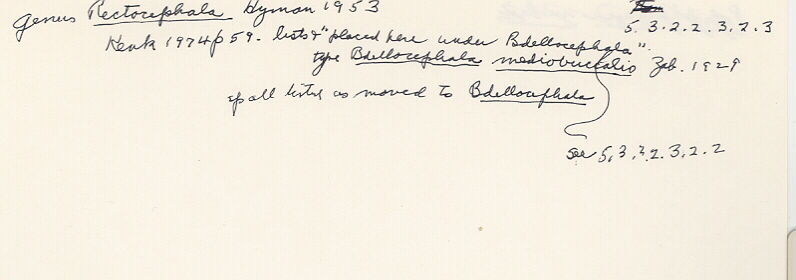 genus Rectocephala Hyman 1953
5.3.2.2.3.2.3
Kenk 1974 p 59. lists & "placed here under Bdellocephala".
type Bdellocephala mediobuccalis Zab. 1929
all listed as moved to Bdellocephala
see 5.3.2.2.3.2.2